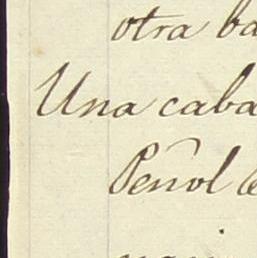 otra ba
Una caba
Peñol